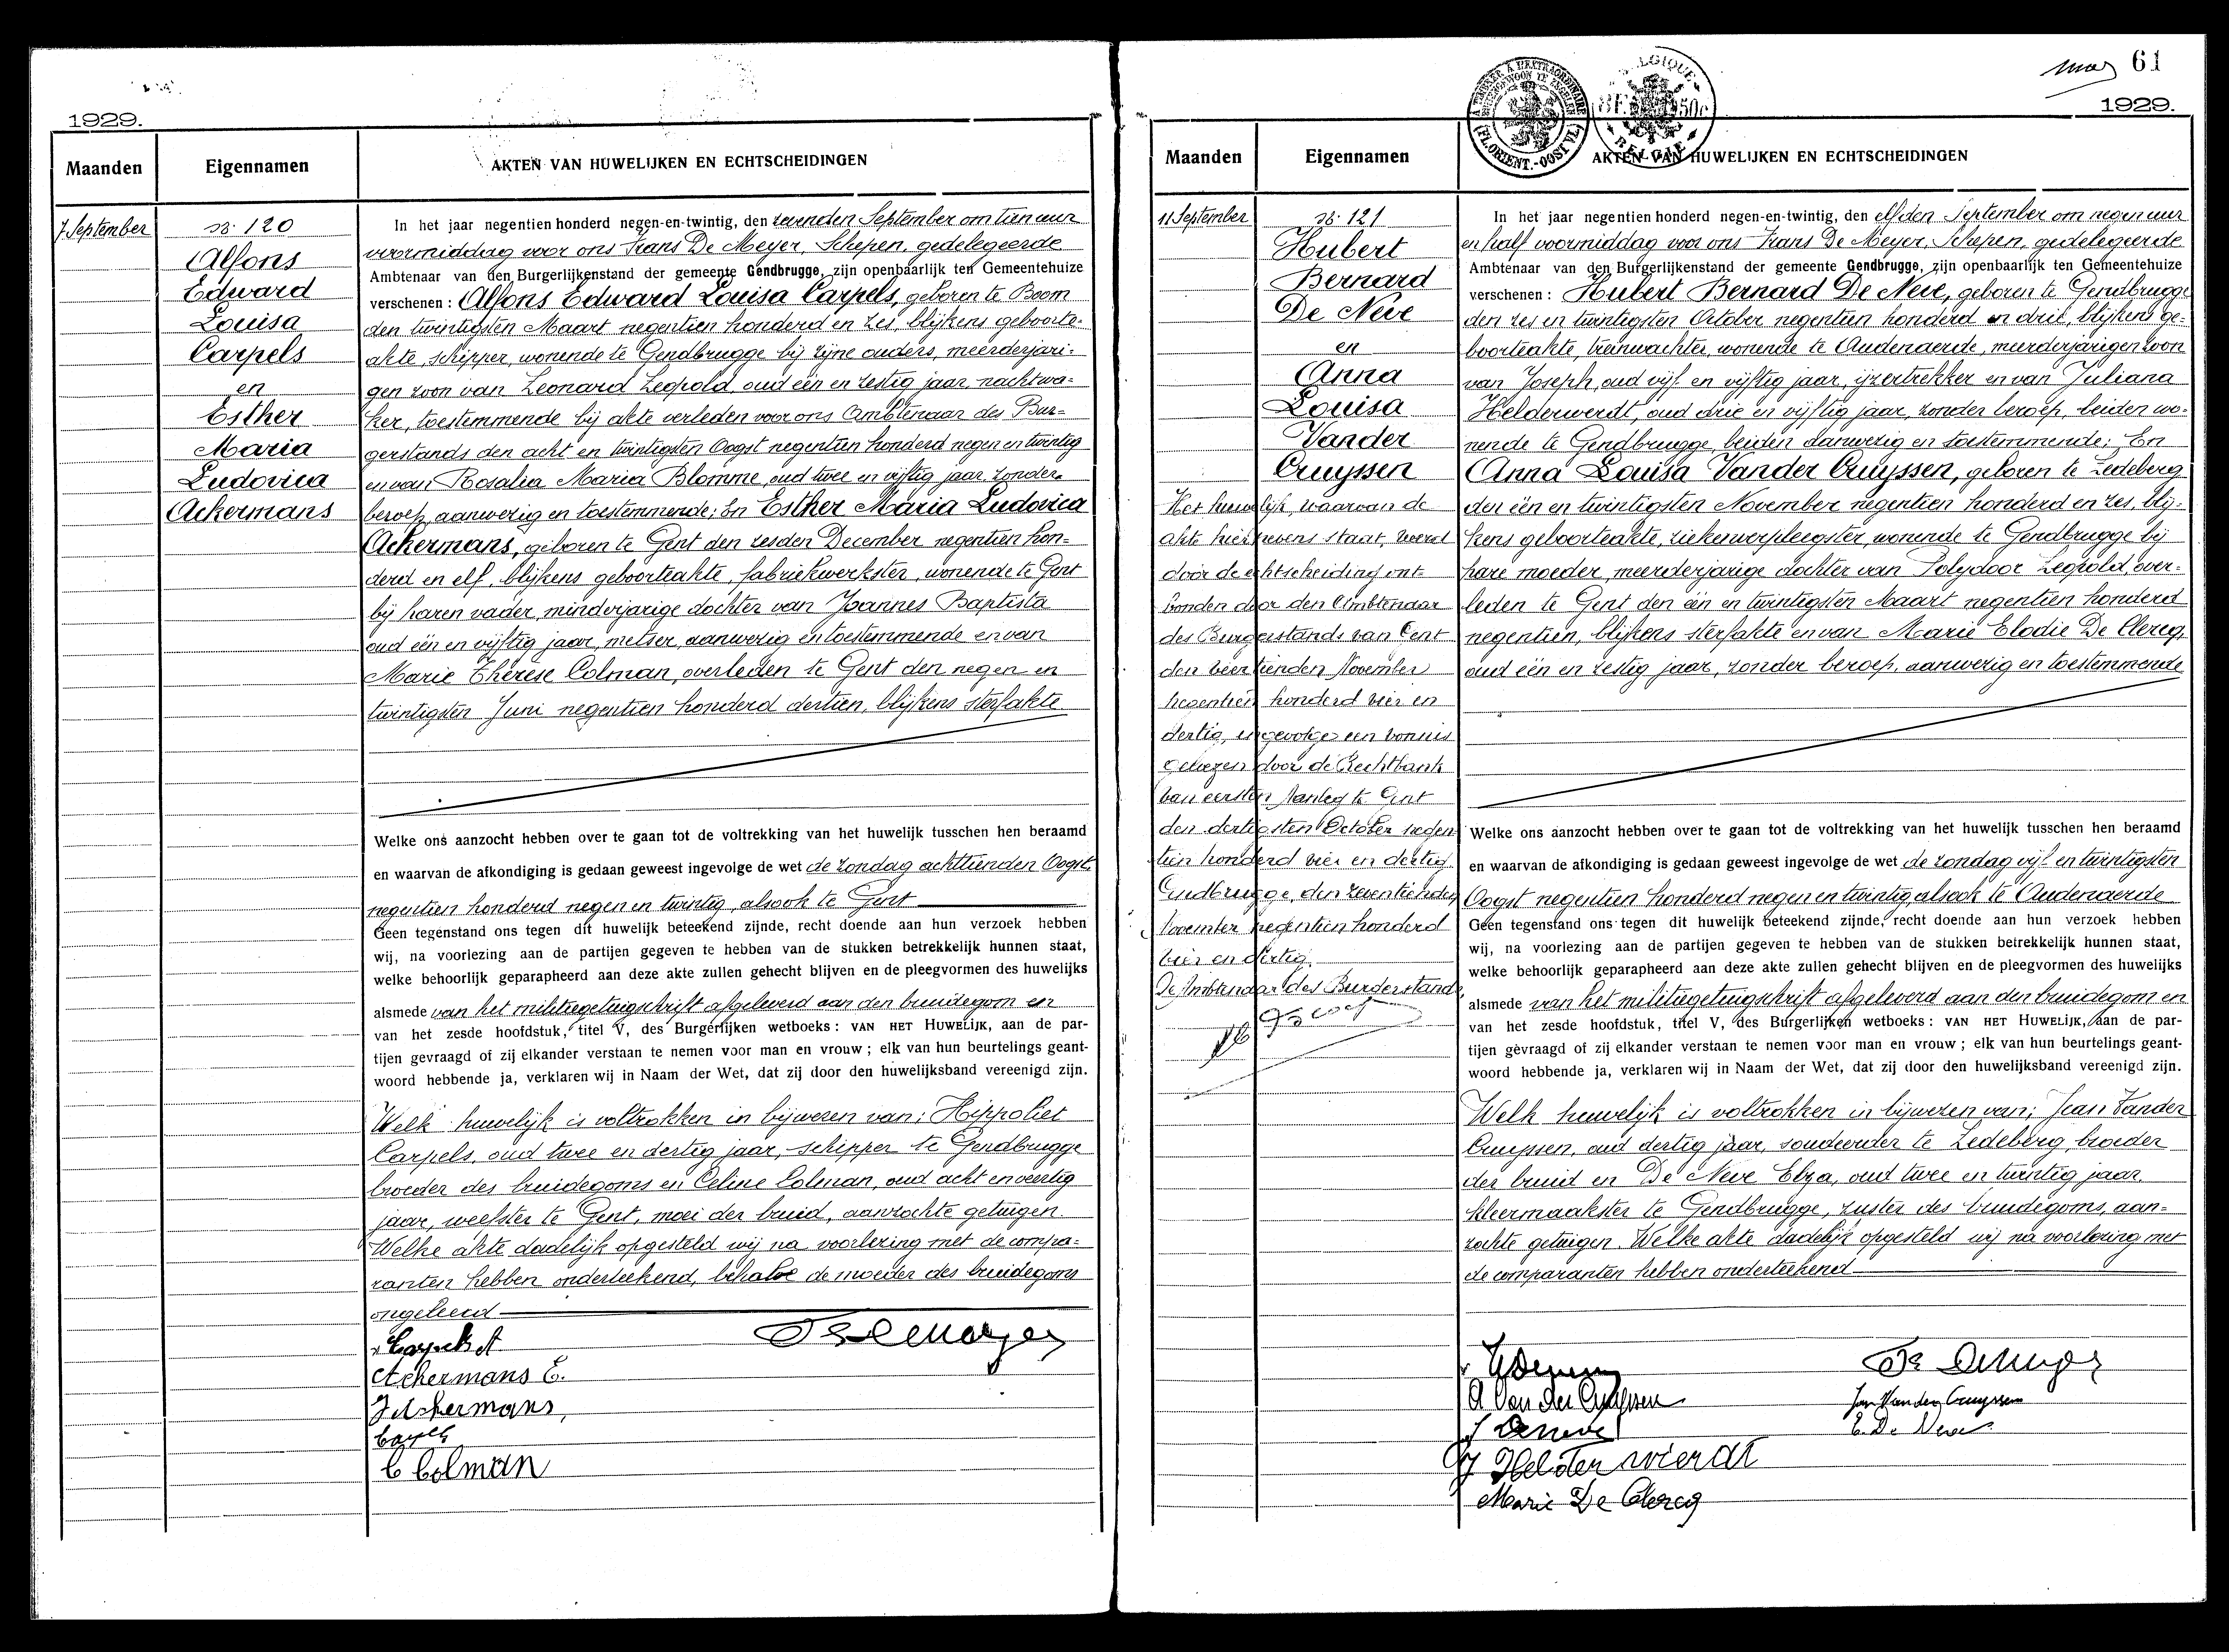 1929.
Maanden
Eigennamen
AKTEN VAN HUWELIJKEN EN ECHTSCHEIDINGEN
7 September
N. 120
Alfons
Edward
Louisa
Carpels
en
Esther
Maria
Ludovica
Ackermans
In het jaar negentien honderd negen-en-twintig, den zevenden September om tien uur
voormiddag voor ons Frans De Meyer, Schepen, gedelegeerde
Ambtenaar van den Burgerlijkenstand der gemeente Gendbrugge, zijn openbaarlijk ten Gemeentehuize
verschenen : Alfons Edward Louisa Carpels, geboren te Boom
den twintigsten Maart negentien honderd en zes, blijkens geboorte-
akte, schipper, wonende te Gendbrugge bij zijne ouders, meerderjari-
gen zoon van Leonard Leopold, oud een en zestig jaar, nachtwa-
ker, toestemmende bij akte verleden voor ons Ambtenaar des Bur-
gerstands den acht en twintigsten Oogst negentien honderd negen en twintig
en van Rosalia Maria Blomme, oud twee en vijftig jaar, zonder
beroep, aanwezig en toestemmende; En Esther Maria Ludovica
Ackermans, geboren te Gent den zesden December negentien hon-
derd en elf, blijkens geboorteakte, fabriekwerkster, wonende te Gent
bij haren vader, minderjarige dochter van Joannes Baptista
oud één en vijftig jaar, metser, aanwezig en toestemmende en van
Marie Thérèse Colman, overleden te Gent den negen en
twintigsten Juni negentien honderd dertien, blijkens sterfakte
Welke ons aanzocht hebben over te gaan tot de voltrekking van het huwelijk tusschen hen beraamd
en waarvan de afkondiging is gedaan geweest ingevolge de wet de zondag achttienden Oogst
negentien honderd negen en twintig, alsook te Gent
Geen tegenstand ons tegen dit huwelijk beteekend zijnde, recht doende aan hun verzoek hebben
wij, na voorlezing aan de partijen gegeven te hebben van de stukken betrekkelijk hunnen staat,
welke behoorlijk geparapheerd aan deze akte zullen gehecht blijven en de pleegvormen des huwelijks
alsmede van het militiegetuigschrift afgeleverd aan den bruidegom en
van het zesde hoofdstuk, titel V, des Burgerlijken wetboeks : VAN HET HUWELIJK, aan de par-
tijen gevraagd of zij elkander verstaan te nemen voor man en vrouw ; elk van hun beurtelings geant-
woord hebbende ja, verklaren wij in Naam der Wet, dat zij door den huwelijksband vereenigd zijn.
Welk huwelijk is voltrokken in bijwezen van; Hippoliet
Carpels, oud twee en dertig jaar, schipper te Gendbrugge
broeder des bruidegoms en Celine Colman, oud acht en veertig
jaar, weefster te Gent, moei der bruid, aanzochte getuigen.
Welke akte dadelijk opgesteld wij na voorlezing met de compa-
ranten hebben onderteekend, behalve de moeder des bruidegoms
ongeleerd
Carpels A
Fr De Meyer
Ackermans E.
J Ackermans,
Carpels
C Colman
61
1929.
A TIMBRER A L'EXTRAORDINAIRE
BUITENGEWOON TE ZEGELEN
(FL. ORIENT.-OOST VL.)
BELGIQUE
BELGIË
Maanden
Eigennamen
AKTEN VAN HUWELIJKEN EN ECHTSCHEIDINGEN
11 September
N. 121
Hubert
Bernard
De Neve
en
Anna
Louisa
Vander
Cruyssen
Het huwelijk, waarvan de
akte hiernevens staat, werd
door de echtscheiding ont-
bonden door den Ambtenaar
des Burgerstands van Gent
den veertienden November
negentien honderd vier en
dertig, ingevolge een vonnis
gewezen door de Rechtbank
van eersten Aanleg te Gent
den dertigsten October negen
tien honderd vier en dertig.
Gendbrugge, den zeventienden
November negentien honderd
vier en dertig.
De Ambtenaar des Burgerstands,
In het jaar negentien honderd negen-en-twintig, den elfden September om negen uur
en half voormiddag voor ons Frans De Meyer, Schepen, gedelegeerde
Ambtenaar van den Burgerlijkenstand der gemeente Gendbrugge, zijn openbaarlijk ten Gemeentehuize
verschenen : Hubert Bernard De Neve, geboren te Gendbrugge
den zes en twintigsten October negentien honderd en drie, blijkens ge-
boorteakte, treinwachter, wonende te Audenaerde, meerderjarigen zoon
van Joseph, oud vijf en vijftig jaar, ijzertrekker en van Juliana
Helderwerdt, oud drie en vijftig jaar, zonder beroep, beiden wo-
nende te Gendbrugge, beiden aanwezig en toestemmende; En
Anna Louisa Vander Cruyssen, geboren te Ledeberg
den één en twintigsten November negentien honderd en zes, blij-
kens geboorteakte, ziekenverpleegster, wonende te Gendbrugge bij
hare moeder, meerderjarige dochter van Polydoor Leopold, over-
leden te Gent den één en twintigsten Maart negentien honderd
negentien, blijkens sterfakte en van Marie Elodie De Clercq,
oud één en zestig jaar, zonder beroep, aanwezig en toestemmende
Welke ons aanzocht hebben over te gaan tot de voltrekking van het huwelijk tusschen hen beraamd
en waarvan de afkondiging is gedaan geweest ingevolge de wet de zondag vijf en twintigsten
Oogst negentien honderd negen en twintig, alsook te Audenaerde
Geen tegenstand ons tegen dit huwelijk beteekend zijnde, recht doende aan hun verzoek hebben
wij, na voorlezing aan de partijen gegeven te hebben van de stukken betrekkelijk hunnen staat,
welke behoorlijk geparapheerd aan deze akte zullen gehecht blijven en de pleegvormen des huwelijks
alsmede van het militiegetuigschrift afgeleverd aan den bruidegom en
van het zesde hoofdstuk, titel V, des Burgerlijken wetboeks : VAN HET HUWELIJK, aan de par-
tijen gevraagd of zij elkander verstaan te nemen voor man en vrouw ; elk van hun beurtelings geant-
woord hebbende ja, verklaren wij in Naam der Wet, dat zij door den huwelijksband vereenigd zijn.
Welk huwelijk is voltrokken in bijwezen van; Jean Vander
Cruyssen, oud dertig jaar, soudeerder te Ledeberg, broeder
der bruid en De Neve Elza, oud twee en twintig jaar,
kleermaakster te Gendbrugge, zuster des bruidegoms, aan-
zochte getuigen. Welke akte dadelijk opgesteld wij na voorlezing met
de comparanten hebben onderteekend
Fr De Meyer
A Van der Cruyssen
Jan Vander Cruyssen
J Deneve
E. De Neve
J Helderwierdt
Marie De Clercq